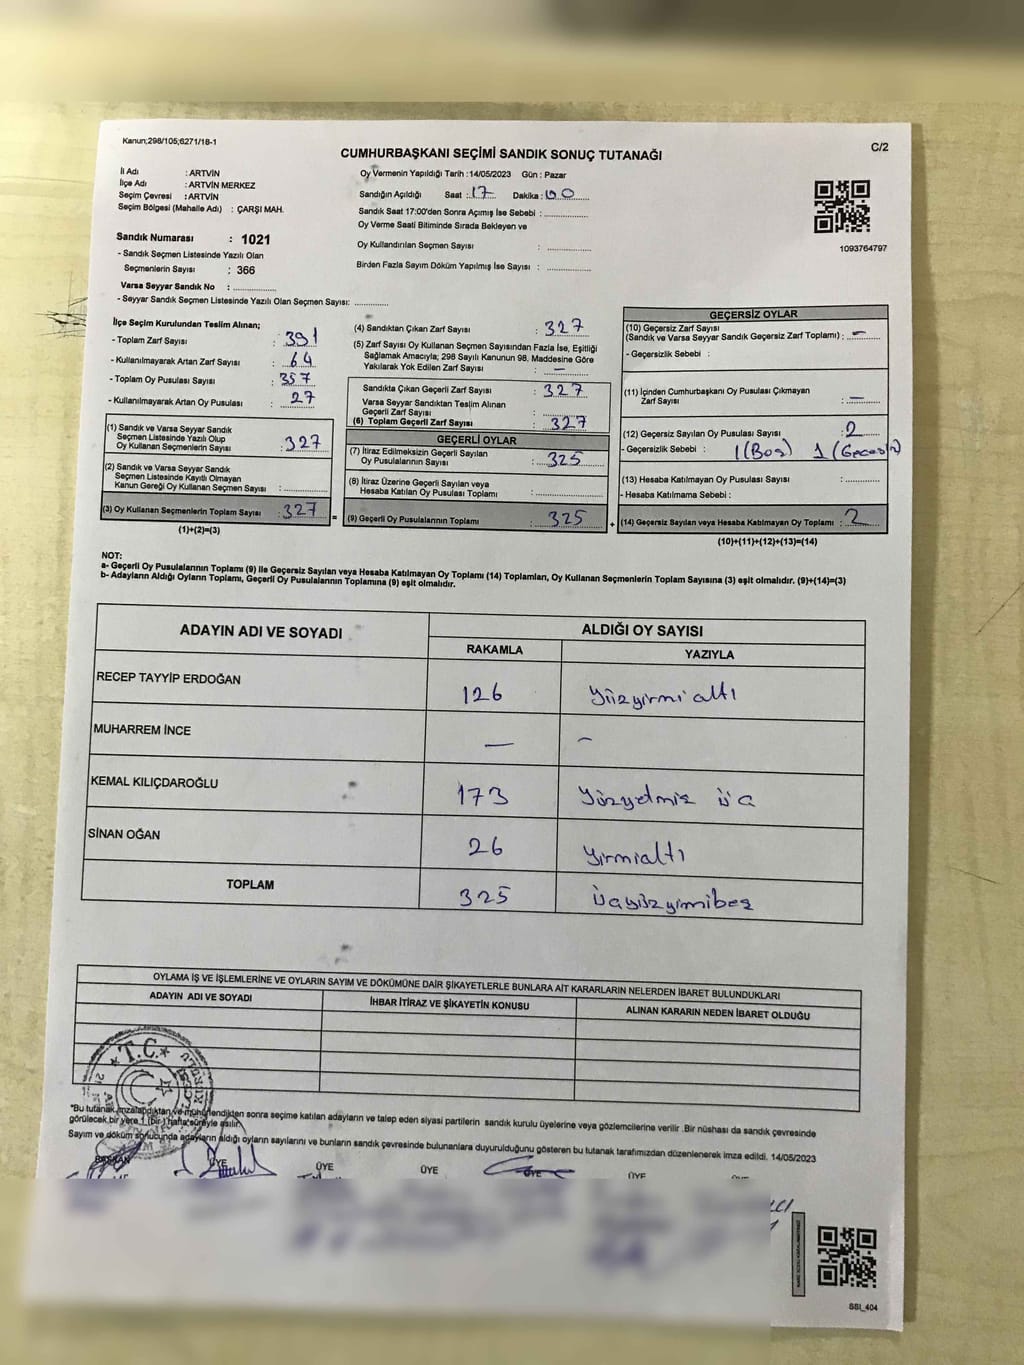 Kanun;298/105;6271/18-1
C/2
CUMHURBAŞKANI SEÇİMİ SANDIK SONUÇ TUTANAĞI
İl Adı : ARTVİN
İlçe Adı : ARTVİN MERKEZ
Seçim Çevresi : ARTVİN
Seçim Bölgesi (Mahalle Adı) : ÇARŞI MAH.
Sandık Numarası : 1021
- Sandık Seçmen Listesinde Yazılı Olan
Seçmenlerin Sayısı : 366
Varsa Seyyar Sandık No : ................
- Seyyar Sandık Seçmen Listesinde Yazılı Olan Seçmen Sayısı: ............
Oy Vermenin Yapıldığı Tarih : 14/05/2023 Gün : Pazar
Sandığın Açıldığı Saat : 17 Dakika : 00
Sandık Saat 17:00'den Sonra Açımış İse Sebebi : ................
Oy Verme Saati Bitiminde Sırada Bekleyen ve
Oy Kullandırılan Seçmen Sayısı : ................
Birden Fazla Sayım Döküm Yapılmış İse Sayısı : ................
1093764797
İlçe Seçim Kurulundan Teslim Alınan;
- Toplam Zarf Sayısı : 391
- Kullanılmayarak Artan Zarf Sayısı : 64
- Toplam Oy Pusulası Sayısı : 357
- Kullanılmayarak Artan Oy Pusulası : 27
(1) Sandık ve Varsa Seyyar Sandık
Seçmen Listesinde Yazılı Olup
Oy Kullanan Seçmenlerin Sayısı : 327
(2) Sandık ve Varsa Seyyar Sandık
Seçmen Listesinde Kayıtlı Olmayan
Kanun Gereği Oy Kullanan Seçmen Sayısı : ............
(3) Oy Kullanan Seçmenlerin Toplam Sayısı : 327
(1)+(2)=(3)
(4) Sandıktan Çıkan Zarf Sayısı : 327
(5) Zarf Sayısı Oy Kullanan Seçmen Sayısından Fazla İse, Eşitliği
Sağlamak Amacıyla; 298 Sayılı Kanunun 98. Maddesine Göre
Yakılarak Yok Edilen Zarf Sayısı : —
Sandıkta Çıkan Geçerli Zarf Sayısı : 327
Varsa Seyyar Sandıktan Teslim Alınan
Geçerli Zarf Sayısı : ............
(6) Toplam Geçerli Zarf Sayısı : 327
GEÇERLİ OYLAR
(7) İtiraz Edilmeksizin Geçerli Sayılan
Oy Pusulalarının Sayısı : 325
(8) İtiraz Üzerine Geçerli Sayılan veya
Hesaba Katılan Oy Pusulası Toplamı : ............
= (9) Geçerli Oy Pusulalarının Toplamı : 325 +
GEÇERSİZ OYLAR
(10) Geçersiz Zarf Sayısı
(Sandık ve Varsa Seyyar Sandık Geçersiz Zarf Toplamı) : —
- Geçersizlik Sebebi :
(11) İçinden Cumhurbaşkanı Oy Pusulası Çıkmayan
Zarf Sayısı : —
(12) Geçersiz Sayılan Oy Pusulası Sayısı : 2
- Geçersizlik Sebebi : 1(Boş) 1
(13) Hesaba Katılmayan Oy Pusulası Sayısı : ............
- Hesaba Katılmama Sebebi :
(14) Geçersiz Sayılan veya Hesaba Katılmayan Oy Toplamı : 2
(10)+(11)+(12)+(13)=(14)
NOT:
a- Geçerli Oy Pusulalarının Toplamı (9) ile Geçersiz Sayılan veya Hesaba Katılmayan Oy Toplamı (14) Toplamları, Oy Kullanan Seçmenlerin Toplam Sayısına (3) eşit olmalıdır. (9)+(14)=(3)
b- Adayların Aldığı Oyların Toplamı, Geçerli Oy Pusulalarının Toplamına (9) eşit olmalıdır.
ADAYIN ADI VE SOYADI ALDIĞI OY SAYISI
RAKAMLA YAZIYLA
RECEP TAYYİP ERDOĞAN 126 Yüzyirmialtı
MUHARREM İNCE — –
KEMAL KILIÇDAROĞLU 173 Yüzyetmiş üç
SİNAN OĞAN 26 Yirmialtı
TOPLAM 325 Üçyüzyirmibeş
OYLAMA İŞ VE İŞLEMLERİNE VE OYLARIN SAYIM VE DÖKÜMÜNE DAİR ŞİKAYETLERLE BUNLARA AİT KARARLARIN NELERDEN İBARET BULUNDUKLARI
ADAYIN ADI VE SOYADI İHBAR İTİRAZ VE ŞİKAYETİN KONUSU ALINAN KARARIN NEDEN İBARET OLDUĞU
T.C.
*Bu tutanak imzalandıktan ve mühürlendikten sonra seçime katılan adayların ve talep eden siyasi partilerin sandık kurulu üyelerine veya gözlemcilerine verilir. Bir nüshası da sandık çevresinde
görülecek bir yere 1 (bir) hafta süreyle asılır.
Sayım ve döküm sonucunda adayların aldığı oyların sayılarını ve bunların sandık çevresinde bulunanlara duyurulduğunu gösteren bu tutanak tarafımızdan düzenlenerek imza edildi. 14/05/2023
BAŞKAN ÜYE ÜYE ÜYE ÜYE ÜYE ÜYE
SSI_404